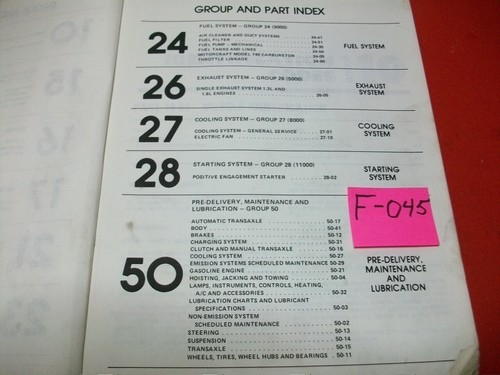 GROUP AND PART INDEX
24
FUEL SYSTEM – GROUP 24 (9000)
AIR CLEANER AND DUCT SYSTEMS 24-41
FUEL FILTER 24-51
FUEL PUMP – MECHANICAL 24-35
FUEL TANKS AND LINES 24-54
MOTORCRAFT MODEL 740 CARBURETOR
THROTTLE LINKAGE
FUEL SYSTEM
26
EXHAUST SYSTEM – GROUP 26 (5000)
SINGLE EXHAUST SYSTEM 1.3L AND
1.6L ENGINES 26-05
EXHAUST
SYSTEM
27
COOLING SYSTEM – GROUP 27 (8000)
COOLING SYSTEM – GENERAL SERVICE 27-01
ELECTRIC FAN 27-15
COOLING
SYSTEM
28
STARTING SYSTEM – GROUP 28 (11000)
POSITIVE ENGAGEMENT STARTER 28-02
STARTING
SYSTEM
F-045
50
PRE-DELIVERY, MAINTENANCE AND
LUBRICATION – GROUP 50
AUTOMATIC TRANSAXLE 50-17
BODY 50-41
BRAKES 50-12
CHARGING SYSTEM 50-31
CLUTCH AND MANUAL TRANSAXLE 50-16
COOLING SYSTEM 50-27
EMISSION SYSTEMS SCHEDULED MAINTENANCE 50-29
GASOLINE ENGINE 50-21
HOISTING, JACKING AND TOWING 50-04
LAMPS, INSTRUMENTS, CONTROLS, HEATING,
A/C AND ACCESSORIES 50-32
LUBRICATION CHARTS AND LUBRICANT
SPECIFICATIONS 50-03
NON-EMISSION SYSTEM
SCHEDULED MAINTENANCE 50-02
STEERING 50-13
SUSPENSION 50-14
TRANSAXLE 50-15
WHEELS, TIRES, WHEEL HUBS AND BEARINGS 50-11
PRE-DELIVERY,
MAINTENANCE
AND
LUBRICATION